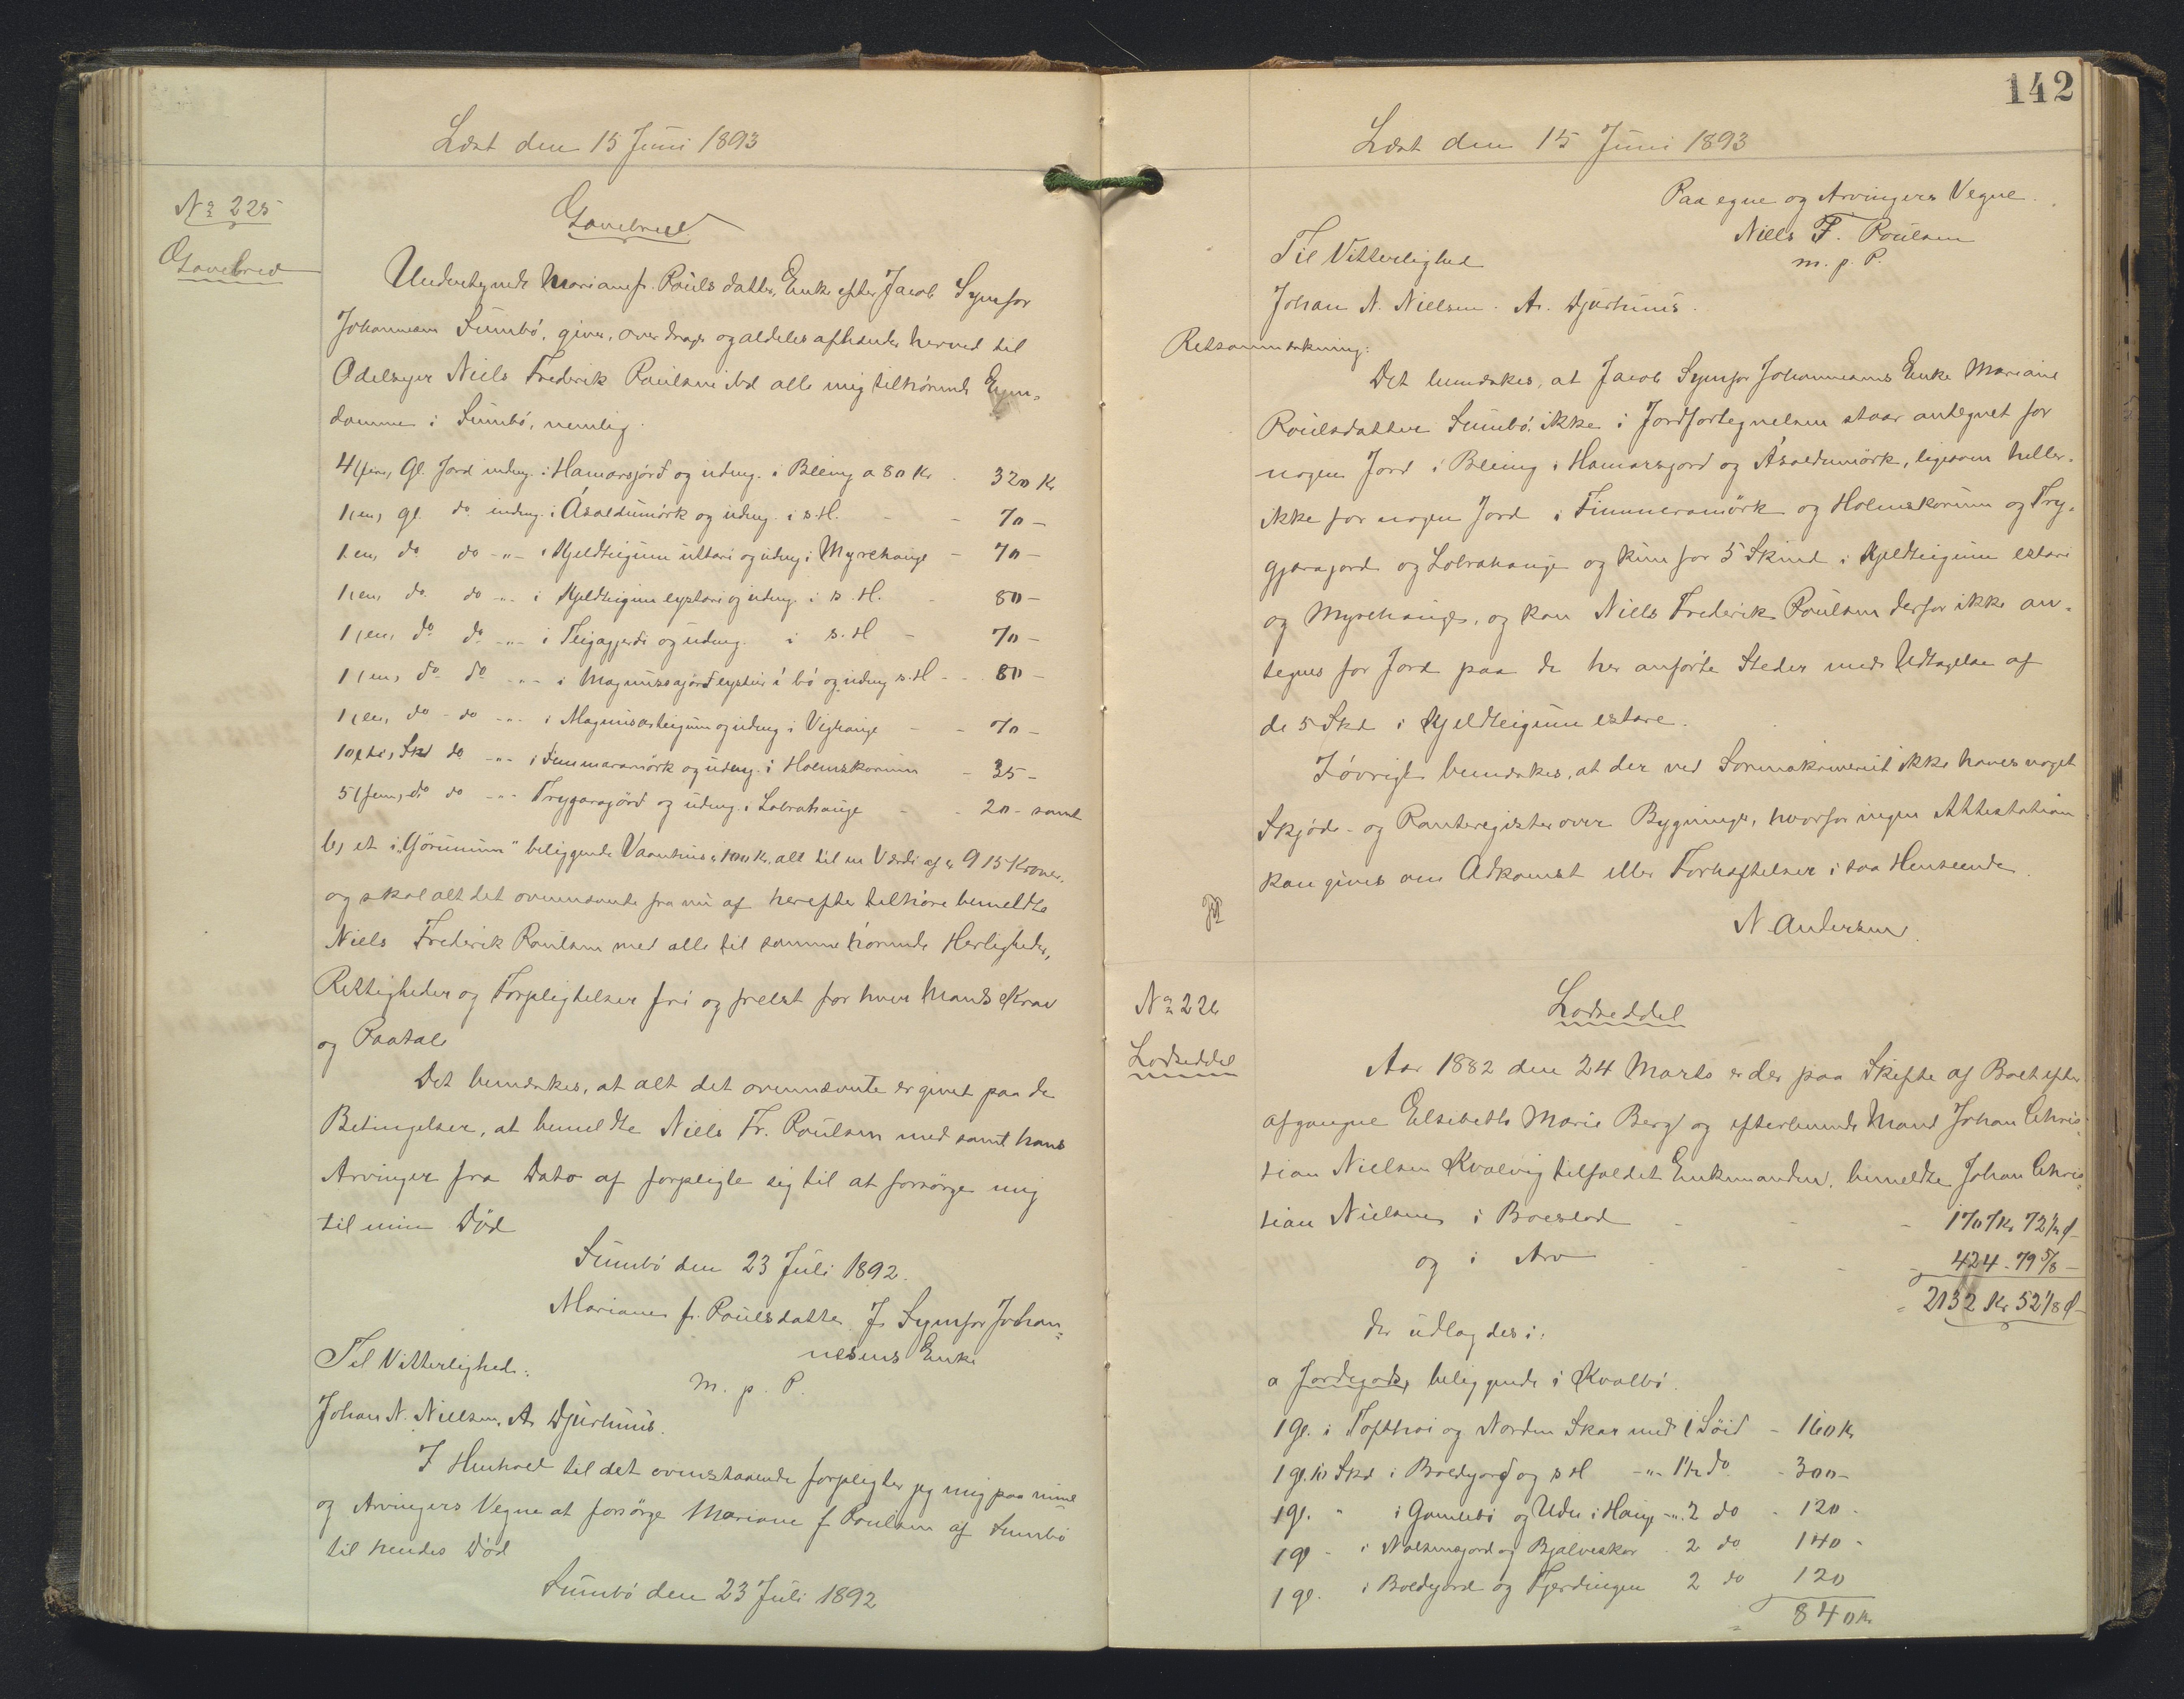 Læst den 15 Juni 1893
No 225
Gavebrev
Gavebrev
Undertegnede Mariane f. Poulsdatter, Enke efter Jacob Symfor
Johannesen Sumbö, giver, overdrager og aldeles afhænder herved til
Odelseyer Niels Frederik Poulsen ibd alle mig tilhörende Eyen-
domme i Sumbö, nemlig
4 (fire) Gl. Jord indmg. i Hamarsgjörd og udmg. i Bleing a 80 Kr. 320 Kr
1 (en) gl. do indmg. i Ásaldumörk og udmg. i s. H. - - 70 -
1 (en) do do -"- i Kjeldteigum uttari og udmg. i Myrehauge - 70 -
1 (en) do do -"- i Kjeldteigum eystari og udmg. i s. H. - 80 -
1 (en) do do -"- i Teigagjerdi og udmg. i s. H - 70 -
1 (en) do do -"- i Magnussagjord eystur í bö og udmg s. H - - 80 -
1 (en) do do -"- i Magnusarteigum og udmg. i Vighauge - - 70 -
10 (ti) Skd do -"- i Finmaramörk og udmg. i Holmskorum - 35 -
5 (fem) do do -"- Trygaragörd og udmg. i Lobrahauge - - 20 - samt
b) et i "Görunum" beliggende Vaanhus a 100 Kr. alt til en Værdi af 915 Kroner,
og skal alt det ovennævnte fra nu af herefter tilhöre bemeldte
Niels Frederik Poulsen med alle til samme hörende Herligheder,
Rettigheder og Forpligtelser fri og frelst for hver Mands Krav
og Paatale
Det bemærkes, at alt det ovennævnte er givet paa de
Betingelser, at bemeldte Niels Fr. Poulsen med samt hans
Arvinger fra Dato af forpligte sig til at forsörge mig
til min Död
Sumbö den 23 Juli 1892.
Mariane f. Poulsdatter J. Symfor Johan-
nesens Enke
m. p. P.
Til Vitterlighed:
Johan N. Nielsen. A. Djurhuus.
I Henhold til det ovenstaaende forpligter jeg mig paa mine
og Arvingers Vegne at forsörge Mariane f Poulsen af Sumbö
til hendes Död
Sumbö den 23 Juli 1892
142
Læst den 15 Juni 1893
Paa egne og Arvingers Vegne.
Niels F. Poulsen
m. p. P.
Til Vitterlighed
Johan N. Nielsen. A. Djurhuus.
Retsanmærkning:
Det bemærkes, at Jacob Symfor Johannesens Enke Mariane
Poulsdatter Sumbö ikke i Jordfortegnelsen staar antegnet for
nogen Jord i Bleing i Hamarsgjord og Ásaldumörk, ligesom heller
ikke for nogen Jord i Finmeramörk og Holmskorum og Try-
gjaragjord og Lobrahauge og kun for 5 Skind i Kjeldteigum estare
og Myrehauge, og kan Niels Frederik Poulsen derfor ikke an-
tegnes for Jord paa de her anförte Steder med Udtagelse af
de 5 Skd i Kjeldteigum estare.
Iövrigt bemærkes, at der ved Sorenskriveriet ikke haves noget
Skjöde- og Panteregister over Bygninger, hvorfor ingen Attestation
kan gives om Adkomst eller Forhæftelser i saa Henseende.
N Andersen
No 226
Lodseddel
Lodseddel
Aar 1882 den 24 Marts er der paa Skifte af Boet efter
afgangne Elsebeth Marie Berg og efterlevende Mand Johan Chris-
tian Nielsen Kvalvig tilfaldet Enkemanden, bemeldte Johan Chris-
tian Nielsen i Boeslod - - - 1707 Kr 72 1/2 Ø
og i Arv - - - - 424 - 79 5/8 -
= 2132 Kr 52 1/8 Ø
der udlagdes i:
a Jordegods, beliggende i Kvalbö.
1 gl. i Tofthoi og Norden Skar med 1 Söid - 160 Kr
1 gl. 10 Skd i Boldgord og s H -"- 1 1/2 do - 300 -
1 gl. " i Gamlebö og Uden i Hauge -"- 2 do - 120 -
1 gl - i Nolsensgord og Bjalveskor 2 do 140 -
1 gl. i Boldgord og Fjerdingen 2 do 120
= 840 Kr